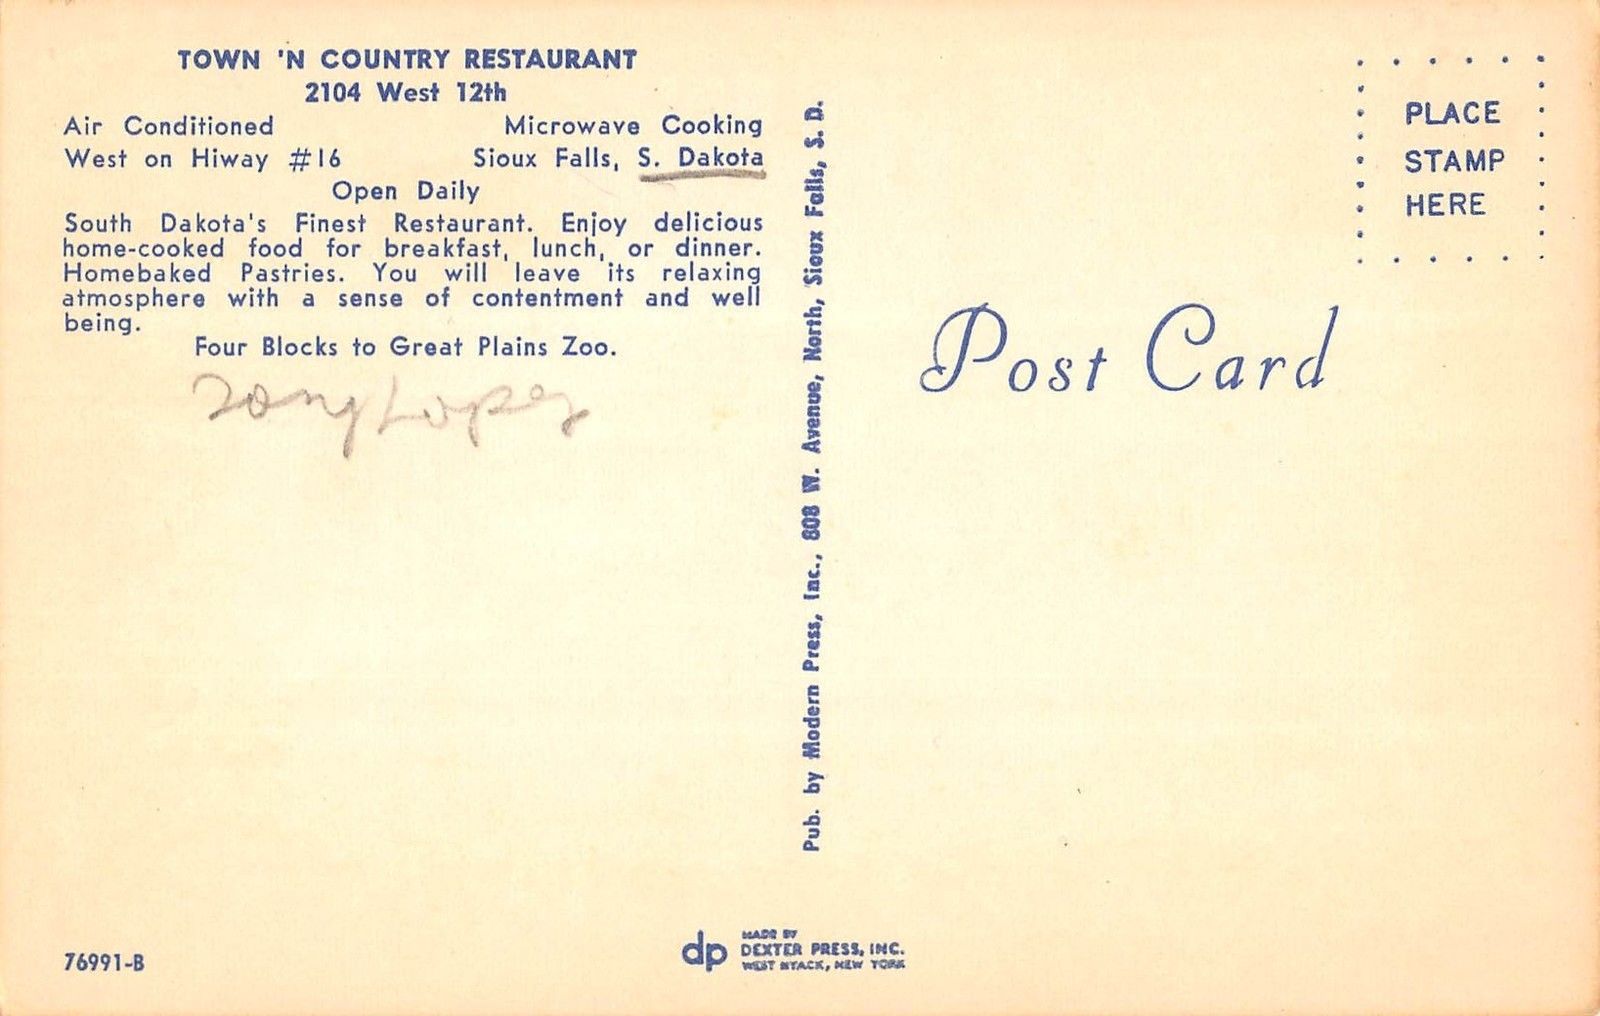 TOWN 'N COUNTRY RESTAURANT
2104 West 12th
Air Conditioned Microwave Cooking
West on Hiway #16 Sioux Falls, S. Dakota
Open Daily
South Dakota's Finest Restaurant. Enjoy delicious
home-cooked food for breakfast, lunch, or dinner.
Homebaked Pastries. You will leave its relaxing
atmosphere with a sense of contentment and well
being.
Four Blocks to Great Plains Zoo.
Tony Lopez
76991-B
Pub. by Modern Press, Inc., 808 W. Avenue, North, Sioux Falls, S. D.
dp
MADE BY
DEXTER PRESS, INC.
WEST NYACK, NEW YORK
PLACE
STAMP
HERE
Post Card